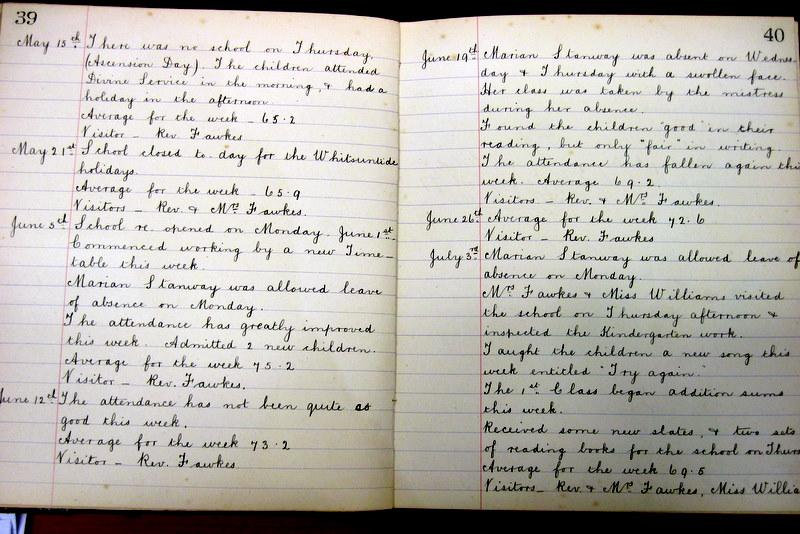 39
May 15th There was no school on Thursday,
(Ascension Day). The children attended
Divine Service in the morning, & had a
holiday in the afternoon
Average for the week - 65.2
Visitor - Rev Fawkes
May 21st School closed to-day for the Whitsuntide
holidays.
Average for the week - 65.9
Visitors - Rev. & Mrs Fawkes.
June 5th School re-opened on Monday. June 1st.
Commenced working by a new Time-
table this week.
Marian Stanway was allowed leave
of absence on Monday.
The attendance has greatly improved
this week. Admitted 2 new children.
Average for the week 75.2
Visitor - Rev. Fawkes.
June 12th The attendance has not been quite as
good this week.
Average for the week 73.2
Visitor - Rev. Fawkes
40
June 19th Marian Stanway was absent on Wednes-
day & Thursday with a swollen face.
Her class was taken by the mistress
during her absence.
Found the children "good" in their
reading, but only "fair" in writing.
The attendance has fallen again thi
week. Average 69.2.
Visitors - Rev. & Mrs Fawkes.
June 26th Average for the week 72.6
Visitor - Rev. Fawkes
July 3rd Marian Stanway was allowed leave of
absence on Monday.
Mrs Fawkes & Miss Williams visited
the school on Thursday afternoon &
inspected the Kindergarten work.
Taught the children a new song this
week entitled "Try again."
The 1st Class began addition sums
this week.
Received some new slates, & two sets
of reading books for the school on Thurs
Average for the week 69.5
Visitors - Rev. & Mrs Fawkes, Miss Willia